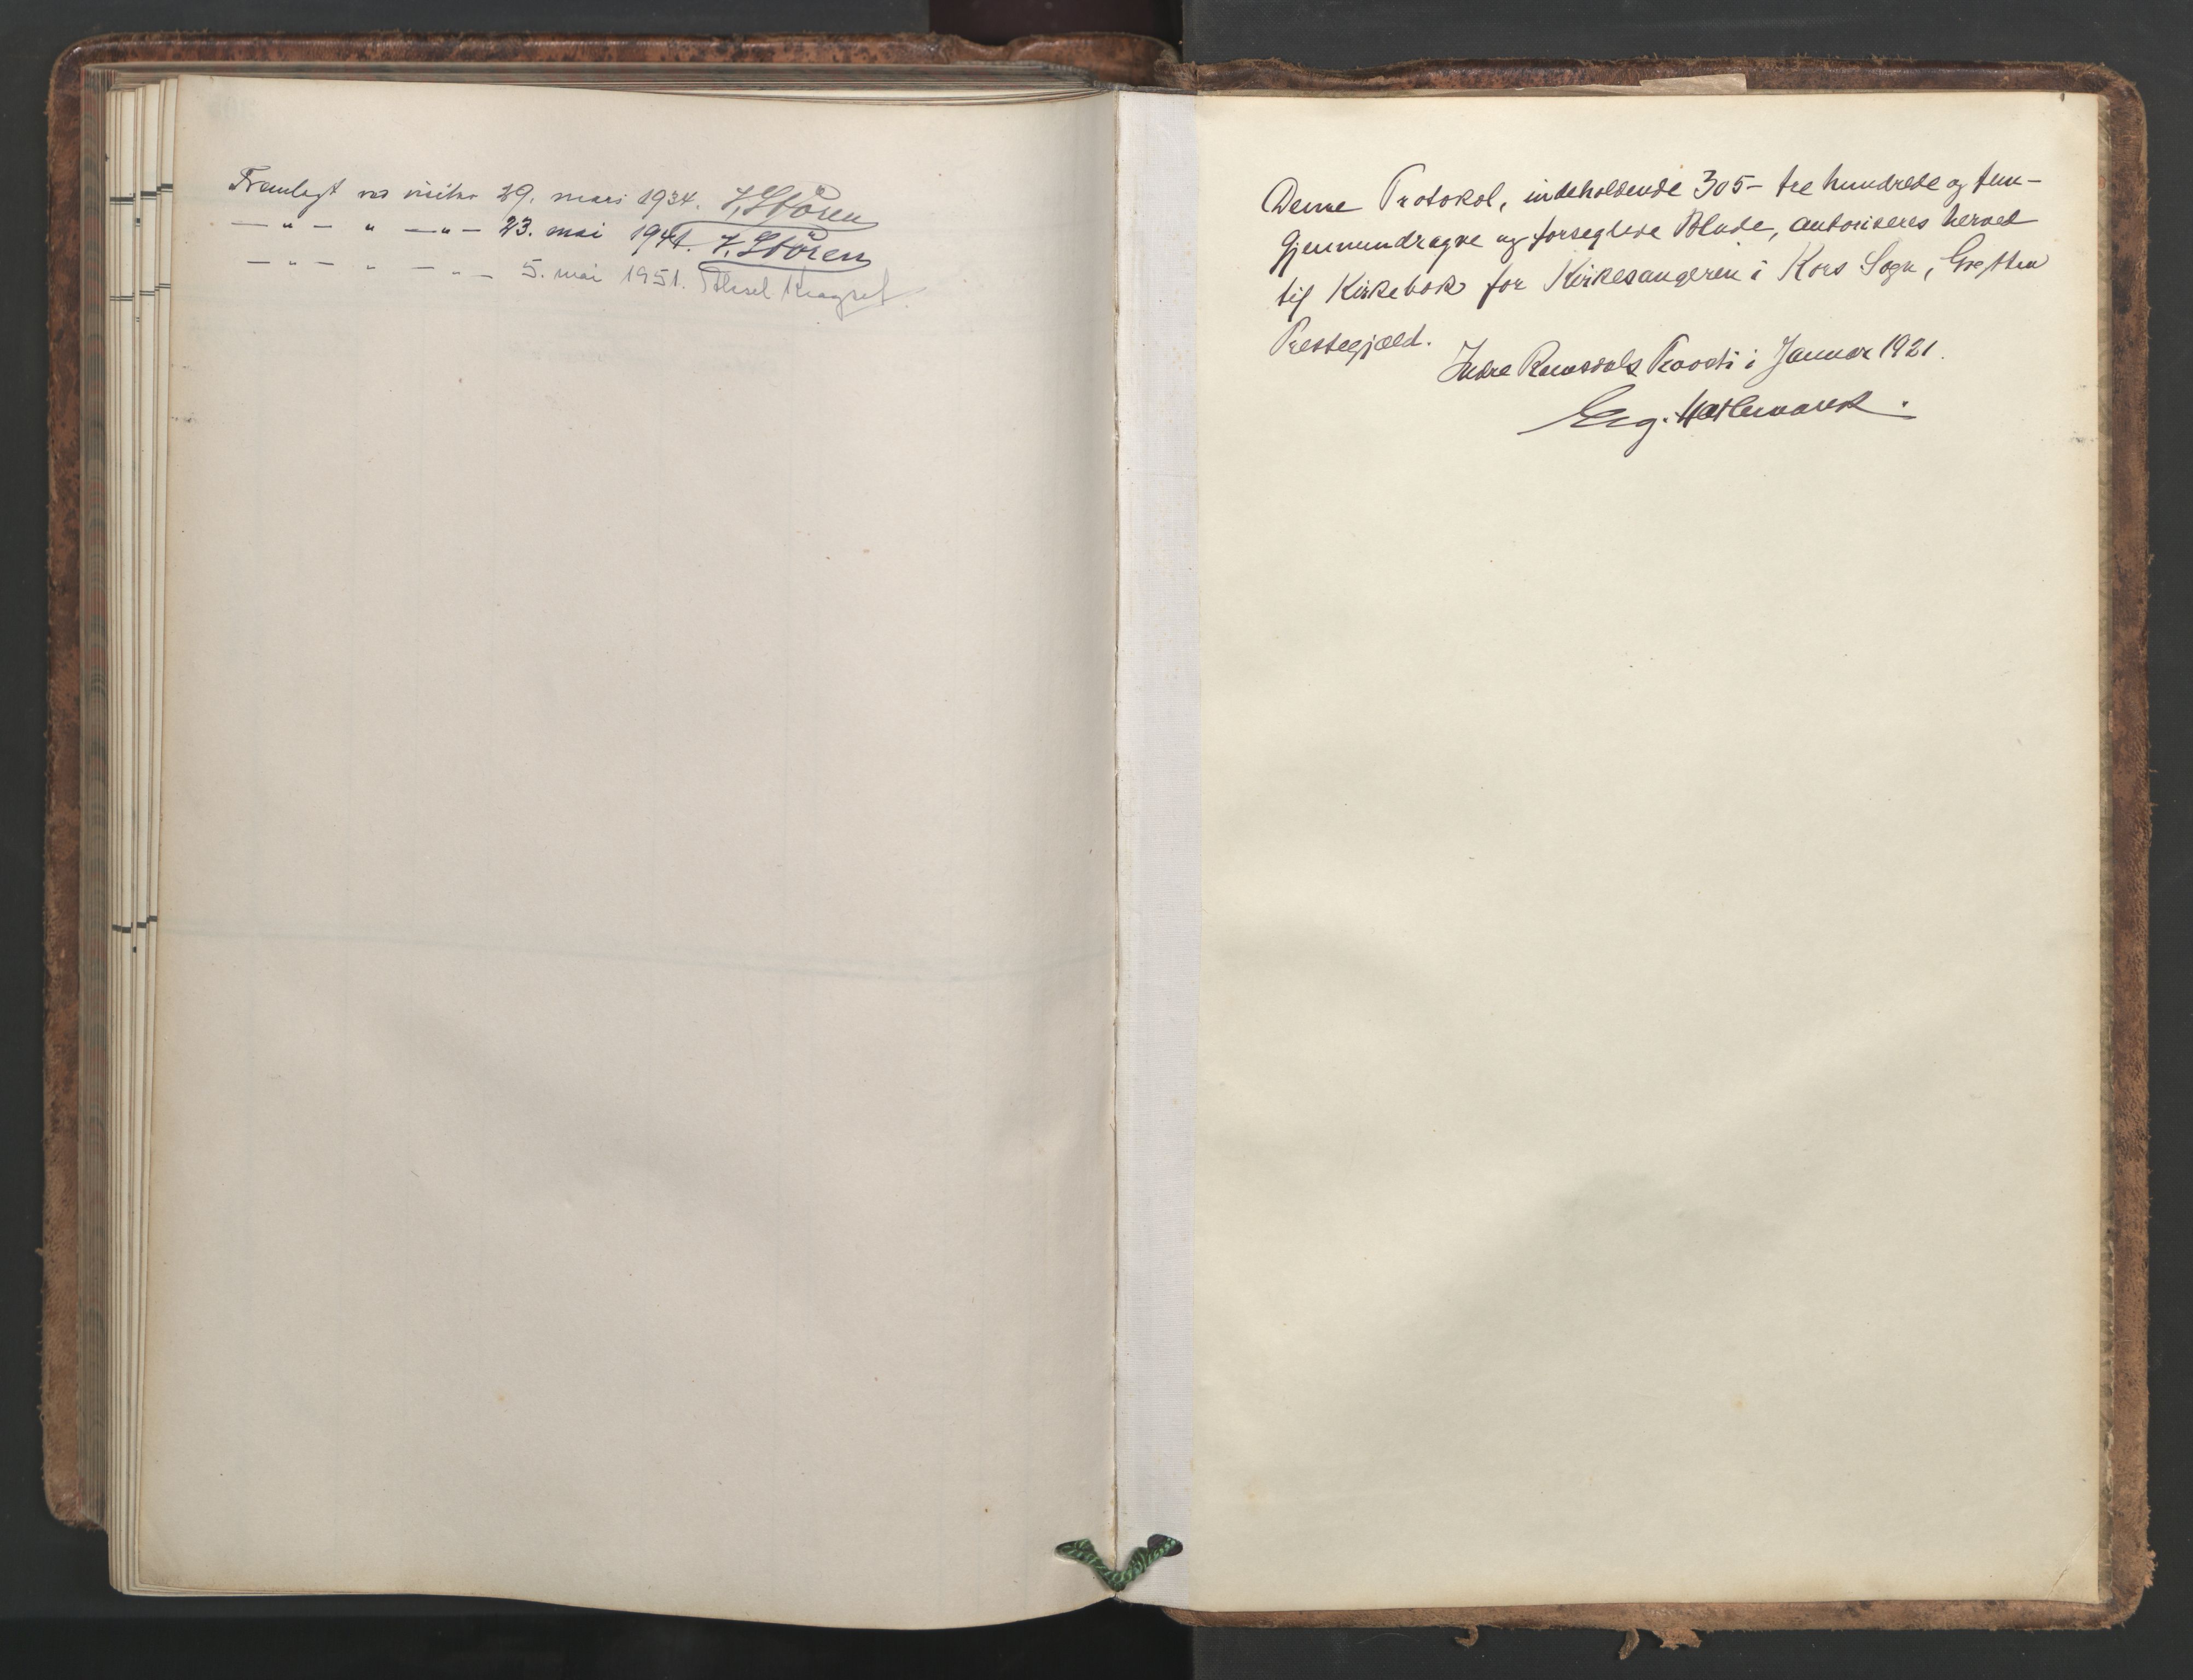 Fremlagt ved visitas 29. mars 1934. J. Stören
— " — " — " — 23. mai 1941. J. Stören
— " — " — " — 5. mai 1951.
Denne Protokol, indeholdende 305 - tre hundrede og fem -
gjennemdragne og forseglede Blade, autoriseres herved
til Kirkebok for Kirkesangeren i Kors Sogn, Grytten
Prestegjæld.
Indre Romsdals Provsti i Januar 1921.